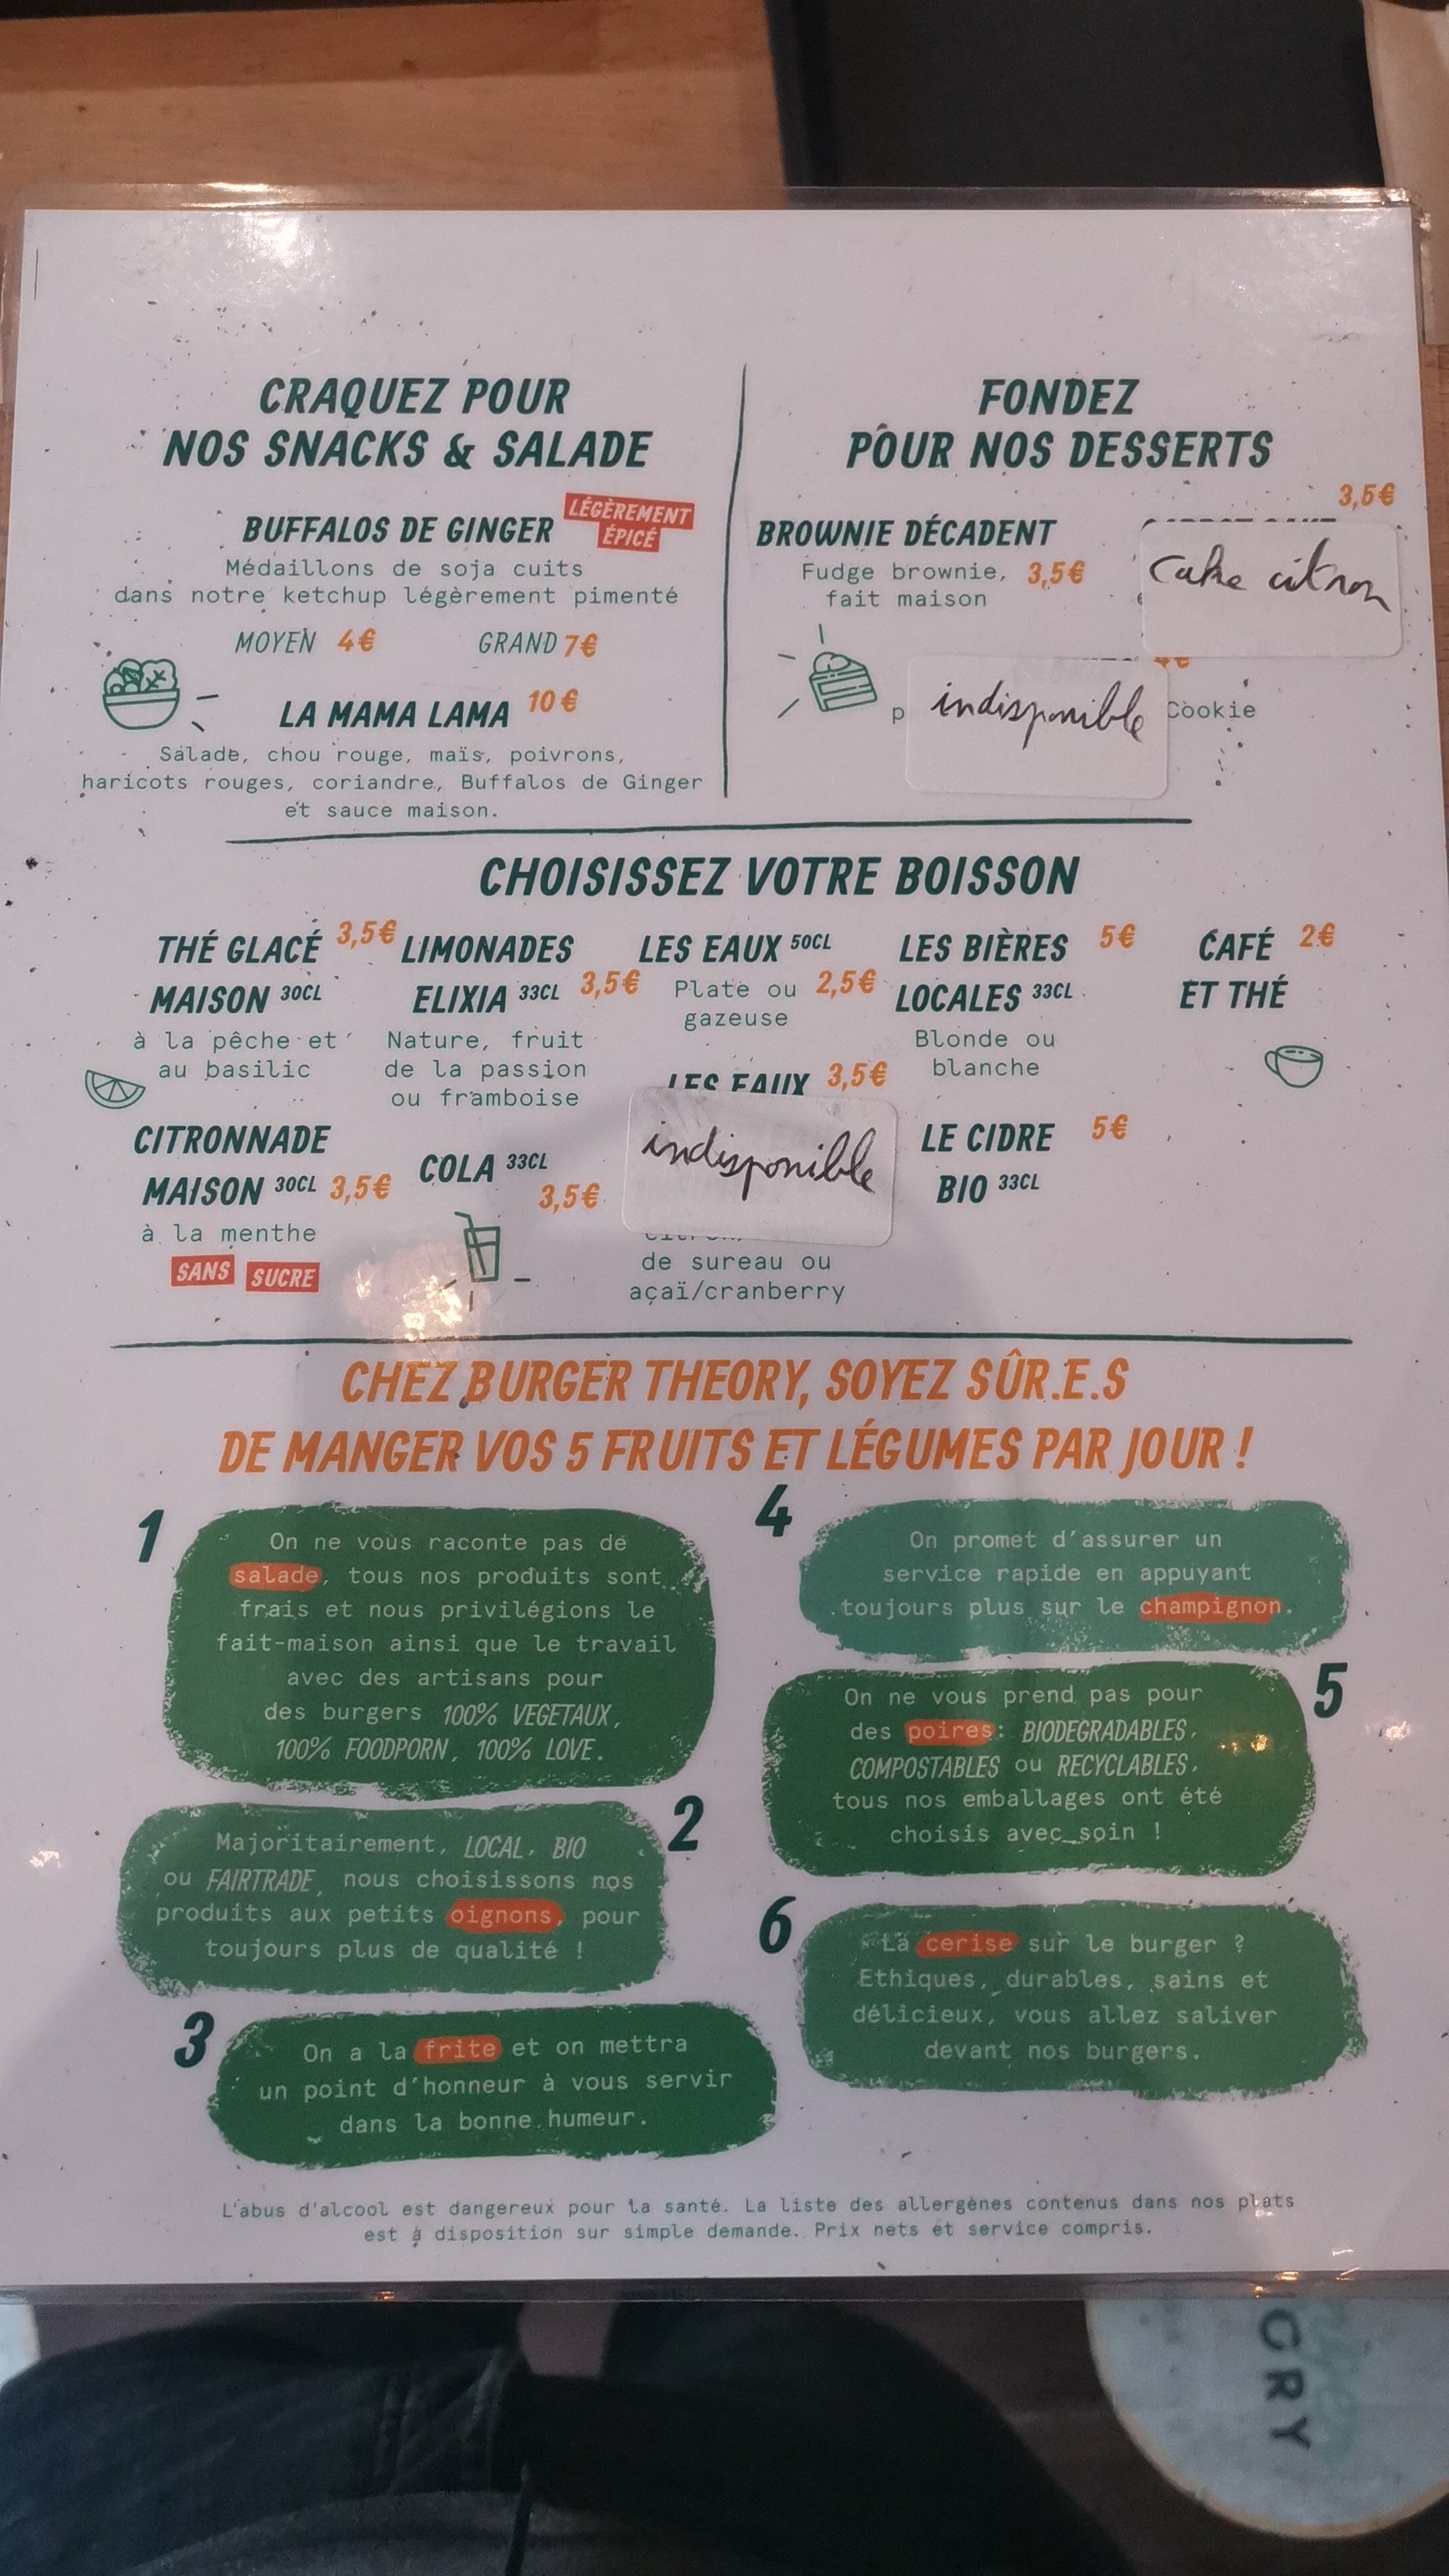 CRAQUEZ POUR
NOS SNACKS & SALADE
BUFFALOS DE GINGER
LÉGÈREMENT
ÉPICÉ
Médaillons de soja cuits
dans notre ketchup légèrement pimenté
MOYEN 4€ GRAND 7€
LA MAMA LAMA 10€
Salade, chou rouge, maïs, poivrons,
haricots rouges, coriandre, Buffalos de Ginger
et sauce maison.
FONDEZ
POUR NOS DESSERTS
BROWNIE DÉCADENT
Fudge brownie, 3,5€
fait maison
3,5€
Cake citron
indisponible
Cookie
CHOISISSEZ VOTRE BOISSON
THÉ GLACÉ 3,5€
MAISON 30CL
à la pêche et
au basilic
CITRONNADE
MAISON 30CL 3,5€
à la menthe
SANS SUCRE
LIMONADES
ELIXIA 33CL 3,5€
Nature, fruit
de la passion
ou framboise
COLA 33CL
3,5€
LES EAUX 50CL
Plate ou 2,5€
gazeuse
LES EAUX 3,5€
indisponible
de sureau ou
açaï/cranberry
LES BIÈRES 5€
LOCALES 33CL
Blonde ou
blanche
LE CIDRE 5€
BIO 33CL
CAFÉ 2€
ET THÉ
CHEZ BURGER THEORY, SOYEZ SÛR.E.S
DE MANGER VOS 5 FRUITS ET LÉGUMES PAR JOUR !
1
On ne vous raconte pas de
salade, tous nos produits sont
frais et nous privilégions le
fait-maison ainsi que le travail
avec des artisans pour
des burgers 100% VEGETAUX,
100% FOODPORN, 100% LOVE.
2
Majoritairement, LOCAL, BIO
ou FAIRTRADE, nous choisissons nos
produits aux petits oignons, pour
toujours plus de qualité !
3
On a la frite et on mettra
un point d'honneur à vous servir
dans la bonne humeur.
4
On promet d'assurer un
service rapide en appuyant
toujours plus sur le champignon.
5
On ne vous prend pas pour
des poires: BIODEGRADABLES,
COMPOSTABLES ou RECYCLABLES,
tous nos emballages ont été
choisis avec soin !
6
La cerise sur le burger ?
Ethiques, durables, sains et
délicieux, vous allez saliver
devant nos burgers.
L'abus d'alcool est dangereux pour la santé. La liste des allergènes contenus dans nos plats
est à disposition sur simple demande. Prix nets et service compris.
CRY